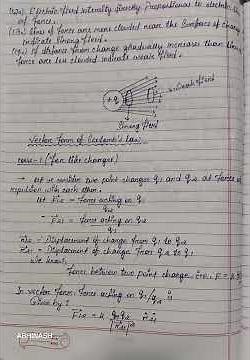 Electric field intensity directly Proportional to electric lines
of force.
Lines of force are more clouded near the Surface of charge
indicate Strong field.
If distance from charge gradually increases than lines
force are less clouded indicate weak field.
+q
weak field
Strong field
Vector Form of Coulomb's Law.
case-1 (for like charges)
Let us consider two point charges q1 and q2 at
repulsion with each other.
Let F12 = Force acting on q1
q2
F21 = Force acting on q2
q1
r12 = Displacement of charge from q1 to q2
r21 = Displacement of charge from q2 to q1
we know,
Force between two point charge. i.e., F = k
In vector form, Force acting on q1/q2
Given by :
F12 = k q1q2 r21
ABHINASH